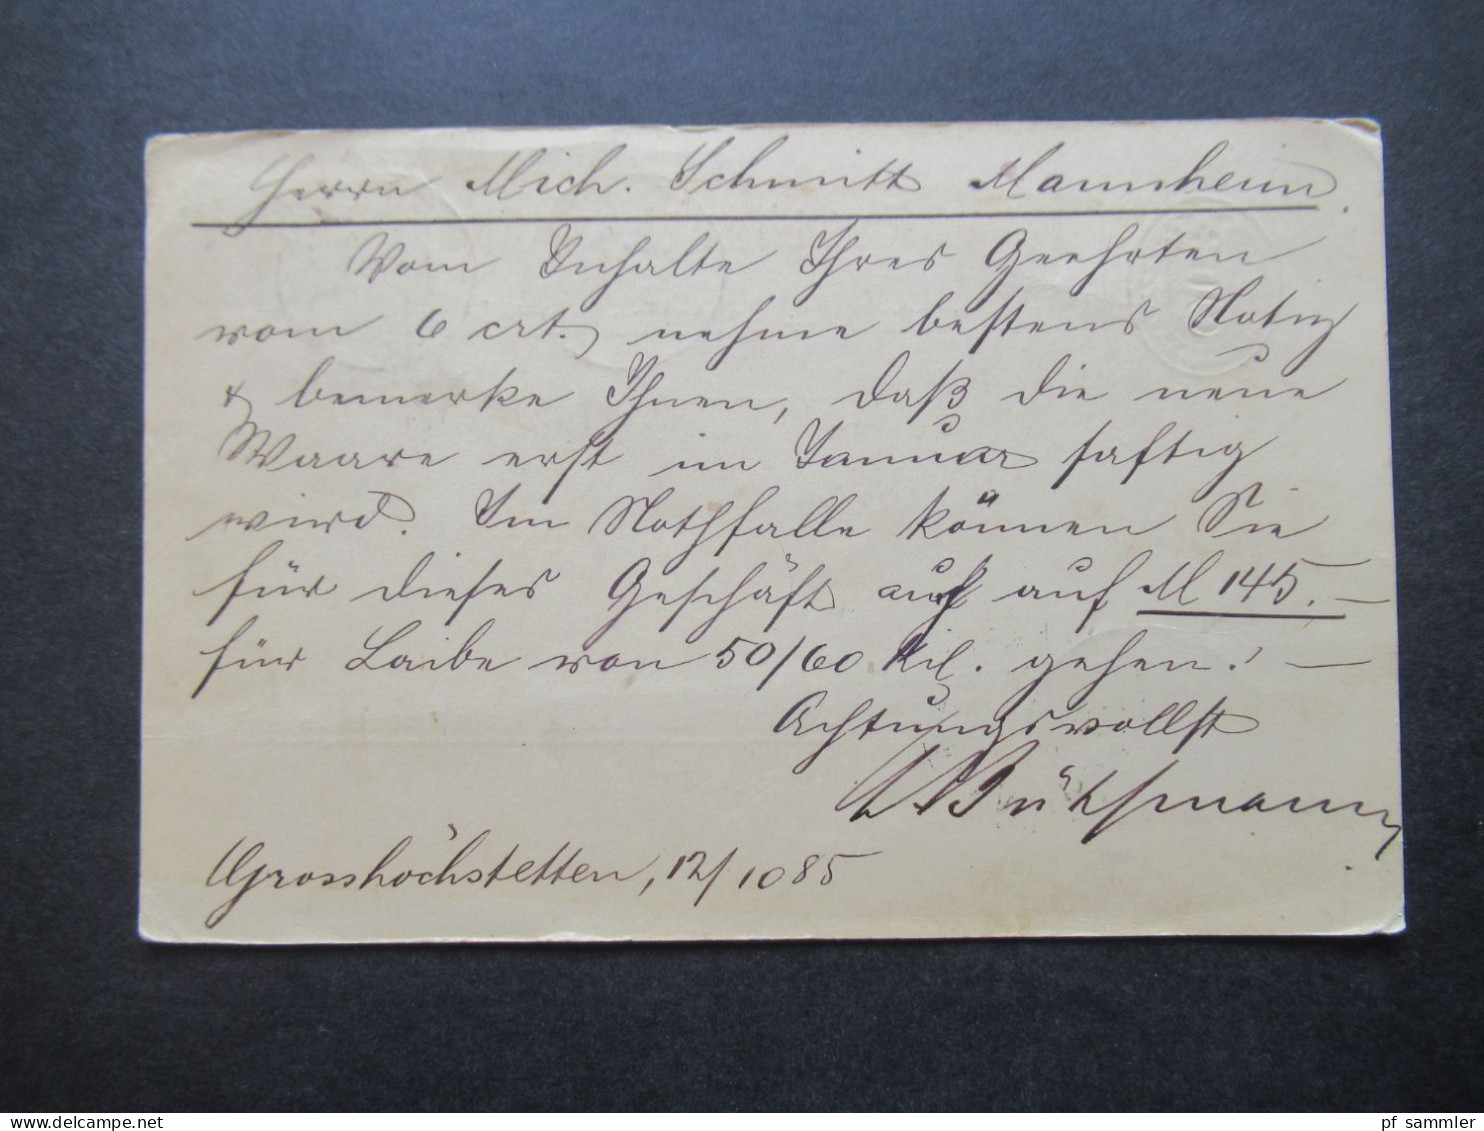 Herrn Mich. Schmitt Mannheim.
Vom Inhalte Ihres Geehrten
vom 6 crt. nehme bestens Notiz
& bemerke Ihnen, daß die neue
Waare erst im Januar saftig
wird. Im Nothfalle können Sie
für dieses Geschäft auch auf M 145.–
für Laibe von 50/60 Kil. gehen! –
Achtungsvollst
Grosshöchstetten, 12/10 85
delcampe.net
pf_sammler